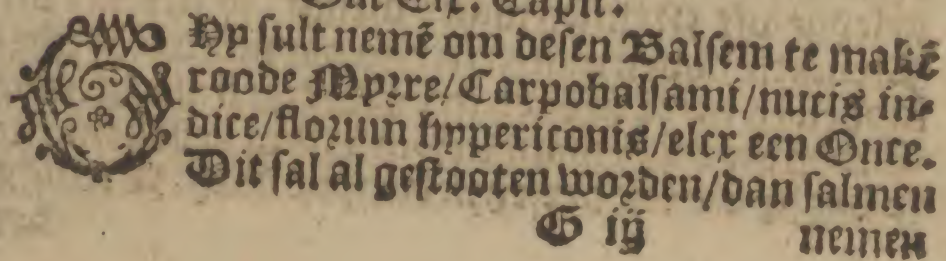 Dat Cix. Capit.
GHy sult nemē om desen Balsem te makē
roode Myrre/Carpobalsami/nucis in-
dice/florum hypericonis/elcx een Once.
Dit sal al gestooten worden/dan salmen
G iij nemen